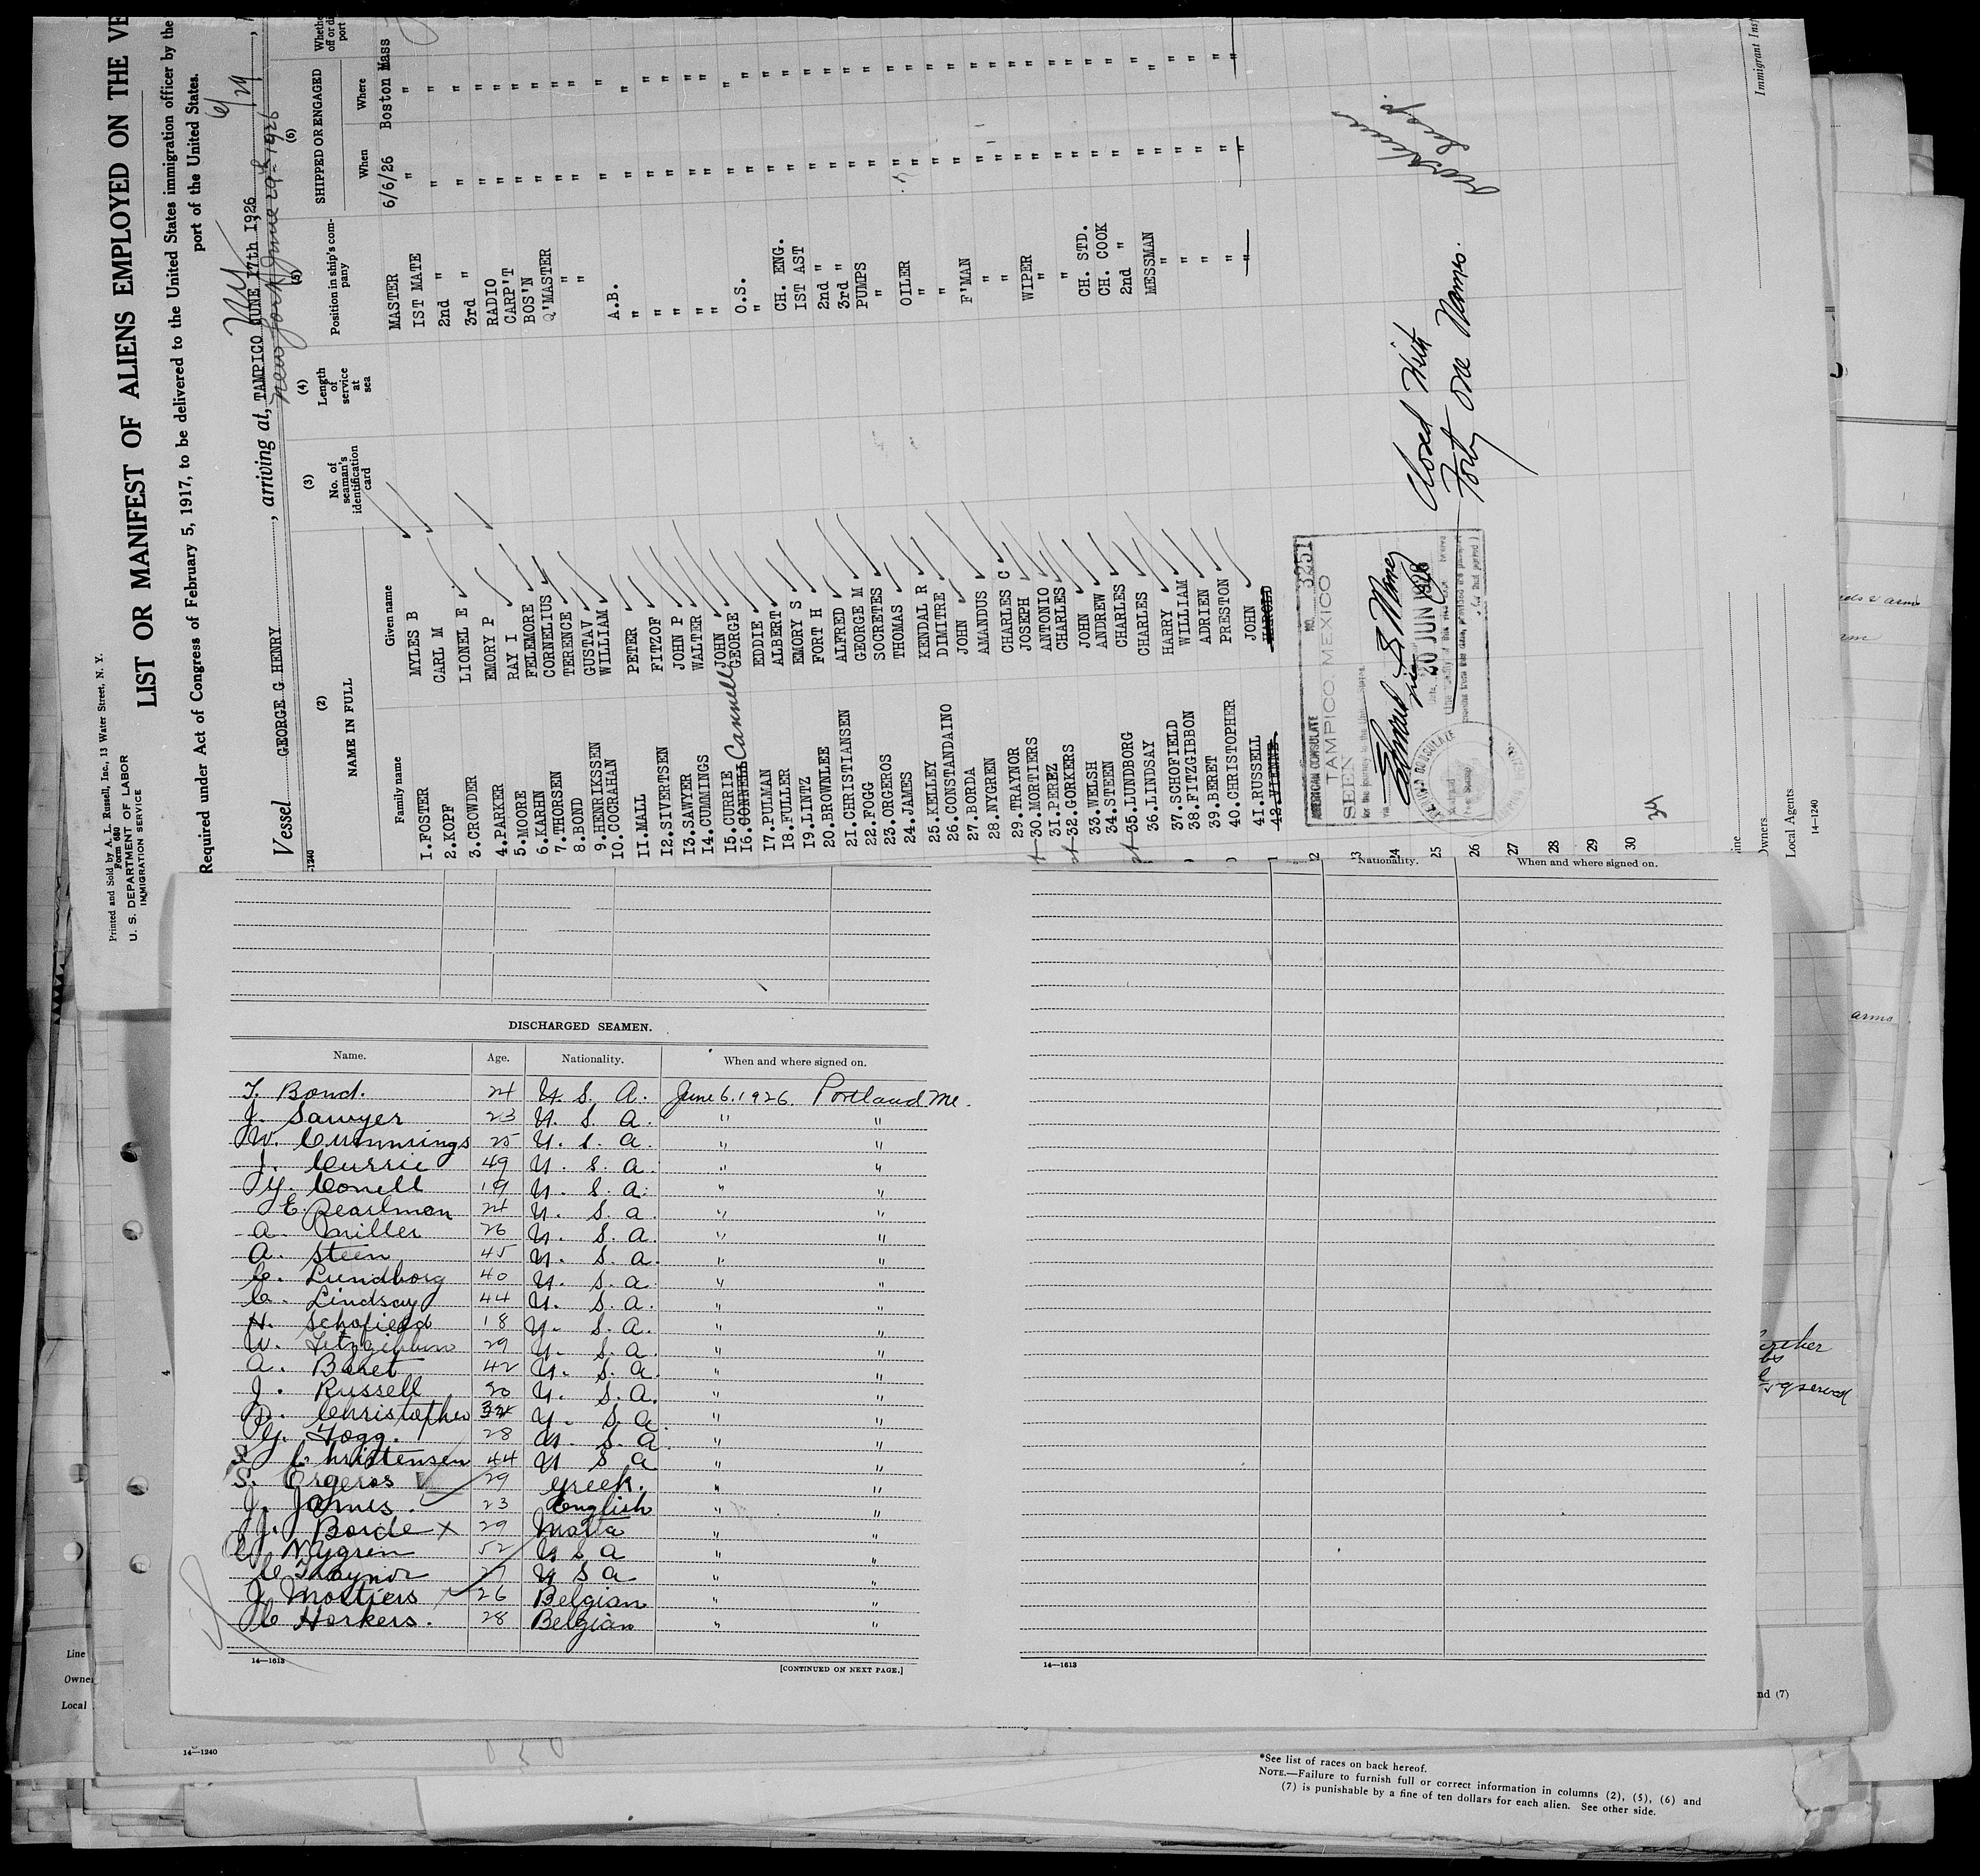 Printed and Sold by A. L. Russell, Inc., 13 Water Street, N. Y.
Form 680
U. S. DEPARTMENT OF LABOR
IMMIGRATION SERVICE
LIST OR MANIFEST OF ALIENS EMPLOYED ON THE VE
Required under Act of Congress of February 5, 1917, to be delivered to the United States immigration officer by the
port of the United States.
6/29
Vessel GEORGE G HENRY, arriving at, TAMPICO JUNE 17th 1926
New York June 29th 1926
-1240
(2) (3) (4) (5) (6)
NAME IN FULL
No. of seaman's identification card
Length of service at sea
Position in ship's company
SHIPPED OR ENGAGED
Family name Given name When Where
1.FOSTER MYLES B MASTER 6/6/26 Boston Mass
2.KOPF CARL M IST MATE " "
3.CROWDER LIONEL E 2nd " " "
4.PARKER EMORY P 3rd " " "
5.MOORE RAY I RADIO " "
6.KARHN FELEMORE CARP'T " "
7.THORSEN CORNELIUS BOS'N " "
8.BOND TERENCE Q'MASTER " "
9.HENRIKSSEN GUSTAV " " "
10.COCRAHAN WILLIAM " " "
11.MALL PETER A.B. " "
12.SIVERTSEN FITZOF " " "
13.SAWYER JOHN P " " "
14.CUMMINGS WALTER " " "
15.CURRIE JOHN " " "
16.CONNELL Cannell GEORGE " " "
17.PULMAN EDDIE O.S. " "
18.FULLER ALBERT " " "
19.LINTZ EMORY S CH. ENG. " "
20.BROWNLEE FORT H IST AST " "
21.CHRISTIANSEN ALFRED 2nd " " "
22.FOGG GEORGE M 3rd " " "
23.ORGEROS SOCRETES PUMPS " "
24.JAMES THOMAS " " "
25.KELLEY KENDAL R OILER " "
26.CONSTANDAINO DIMITRE " " "
27.BORDA JOHN " " "
28.NYGREN AMANDUS F'MAN " "
29.TRAYNOR CHARLES C " " "
30.MORTIERS JOSEPH " " "
31.PEREZ ANTONIO WIPER " "
32.GORKERS CHARLES " " "
33.WELSH JOHN " " "
34.STEEN ANDREW CH. STD. " "
35.LUNDBORG CHARLES CH. COOK " "
36.LINDSAY CHARLES 2nd " " "
37.SCHOFIELD HARRY MESSMAN " "
38.FITZGIBBON WILLIAM " " "
39.BERET ADRIEN " " "
40.CHRISTOPHER PRESTON " " "
41.RUSSELL JOHN " " "
42.VIENNE HAROLD " " "
AMERICAN CONSULATE NO. 3251
TAMPICO, MEXICO
SEEN
20 JUN 1926
Closed With
Forty one Names.
24
25
26
27
28
29
30
Owners.
Local Agents.
14-1240
Immigrant Ins
Nationality. When and where signed on.
DISCHARGED SEAMEN.
Name. Age. Nationality. When and where signed on.
T. Bond. 24 U. S. A. June 6. 1926. Portland Me.
J. Sawyer 23 U. S. A. " "
W. Cummings 25 U. S. A. " "
J. Currie 49 U. S. A. " "
G. Conell 19 U. S. A. " "
E. Pearlman 24 U. S. A. " "
A. Miller 26 U. S. A. " "
A. Steen 45 U. S. A. " "
C. Lundborg 40 U. S. A. " "
C. Lindsay 44 U. S. A. " "
H. Schofield 18 U. S. A. " "
W. Fitzgibbon 29 U. S. A. " "
A. Beret 42 U. S. A. " "
J. Russell 20 U. S. A. " "
P. Christopher U. S. A. " "
G. Fogg. 28 U. S. A. " "
Christensen 44 U S A " "
S. Orgeros 29 Greek. " "
J. James. 23 English " "
J. Borde x 29 Malta " "
A. Nygren 52 U S A " "
C Traynor 27 U S A " "
J. Mortiers 26 Belgian " "
C Horkers. 28 Belgian " "
14—1613
[CONTINUED ON NEXT PAGE.]
14—1613
Line
Owner
Local
nd (7)
14—1240
*See list of races on back hereof.
NOTE.—Failure to furnish full or correct information in columns (2), (5), (6) and
(7) is punishable by a fine of ten dollars for each alien. See other side.